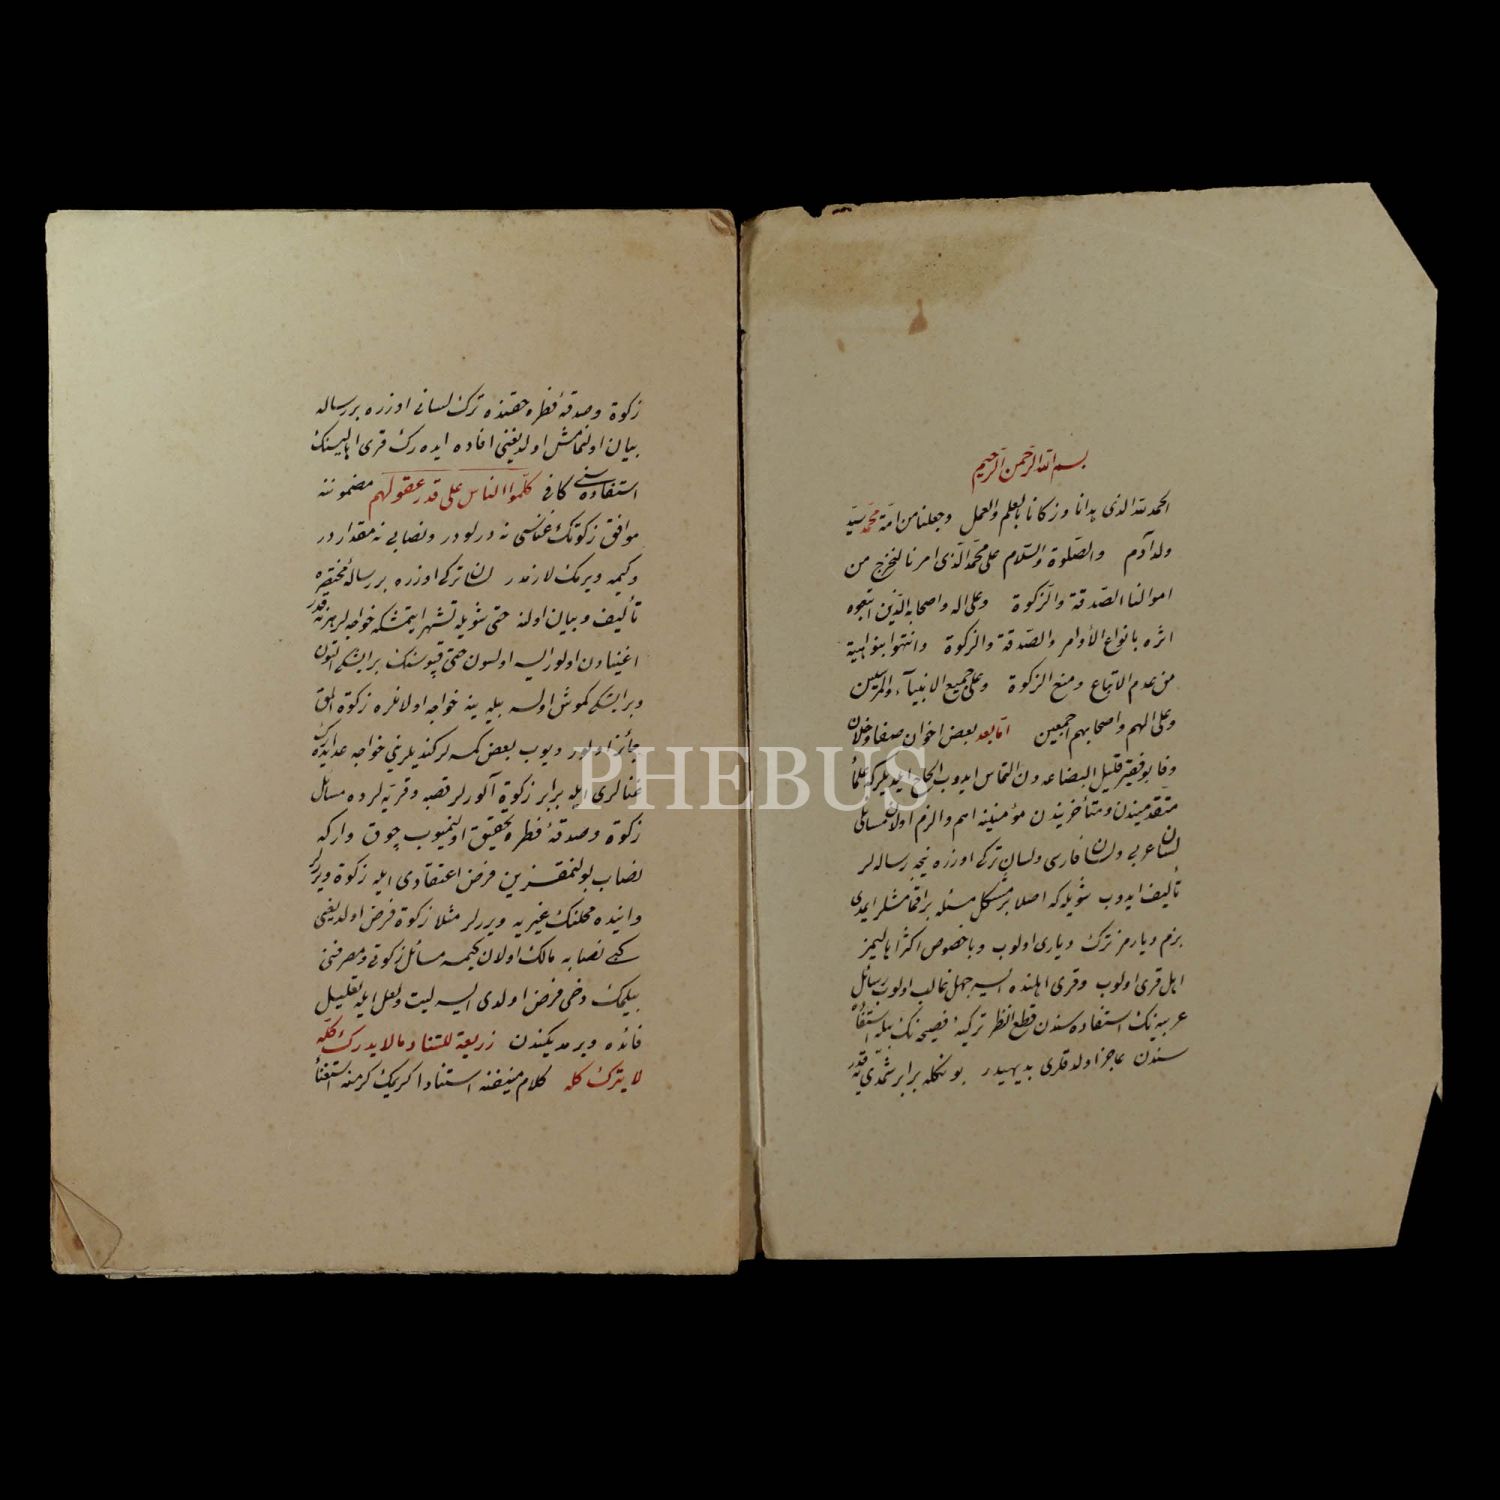 بسم الله الرحمن الرحيم
الحمد لله الذى هدانا وزكانا بالعلم والعمل وجعلنا من امة محمد سيد
ولد آدم والصلوة والسلام على محمد الذى امرنا لنخرج من
اموالنا الصدقة والزكوة وعلى اله واصحابه الذين اتبعوه
اثره بانواع الأوامر والصدقة والزكوة وانتهوا بنواهيه
من عدم الاتباع ومنع الزكوة وعلى جميع الانبيآء والمرسلين
وعلى الهم واصحابهم اجمعين اما بعد بعض اخوان صفا وخلان
وفا بو فقير قليل البضاعه دن التماس ايدوب الحاح ايلديلر كه علماء
متقدميندن ومتأخريندن مؤمنينه اهم والزم اولان مسائلى
لسان عربى ولسان فارسى ولسان تركى اوزره نيجه رساله لر
تأليف ايدوب شويله كه اصلا بر مشكل مسئله براقمامشلر ايمدى
بزم ديارمز ترك ديارى اولوب وباخصوص اكثر اهاليمز
اهل قرى اولوب وقرى اهلنده ايسه جهل غالب اولوب رسائل
عربيه نك استفاده سندن قطع النظر تركيه فصيحه نك بيله استفاده
سندن عاجز اولدقلرى بديهيدر بو نكله برابر شمدى يه قدر
زكوة وصدقۀ فطره حقنده ترك لسانى اوزره بر رساله
بيان اولنمامش اولديغنى افاده ايده رك قرى اهاليسنك
استفاده سنى كافى كلموا الناس على قدر عقولهم مضموننه
موافق زكوتك غناسى نه درلو در ونصابى نه مقدار در
وكيمه ويرمك لازمدر لسان تركى اوزره بر رسالۀ مختصره
تأليف وبيان اولنه حتى شويله تشهر ايتمشكه خواجه لر هر نه قدر
اغنيادن اولورايسه اولسون حتى قپوسنك بر ايشكى التون
وبر ايشكى كموش اولسه بيله ينه خواجه اولانلره زكوة المق
جائز اولور ديوب بعض كمسه لر كنديلرينى خواجه عد ايدرك
غنالرى ايله برابر زكوة آلورلر قصبه وقريه لرده مسائل
زكوة وصدقۀ فطره تحقيق اولنميوب چوق وار كه
نصاب بولنمقسزين فرض اعتقادى ايله زكوة ويررلر
وانيده محلنك غيريه ويررلر مثلا زكوة فرض اولديغى
كبى نصابه مالك اولان كيمسه مسائل زكوتى ومصرفنى
بيلمك دخى فرض اولدى ايسه ليت ولعل ايله تعليل
فائده ويرمديكندن زريعة للتناد مالا يدرك كله
لا يترك كله كلام منيفنه استنادا كريمك كرمنه استغناء